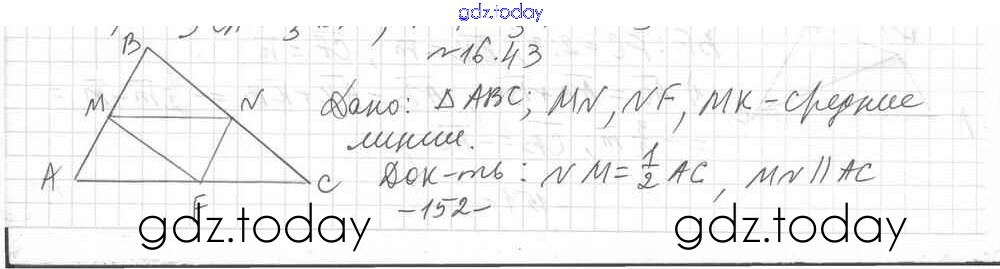 gdz.today
№16.43
B
M N
A F C
Дано: △ABC; MN, NF, MK-средние
линии.
Док-ть: NM=1/2 AC, MN||AC
-152-
gdz.today gdz.today